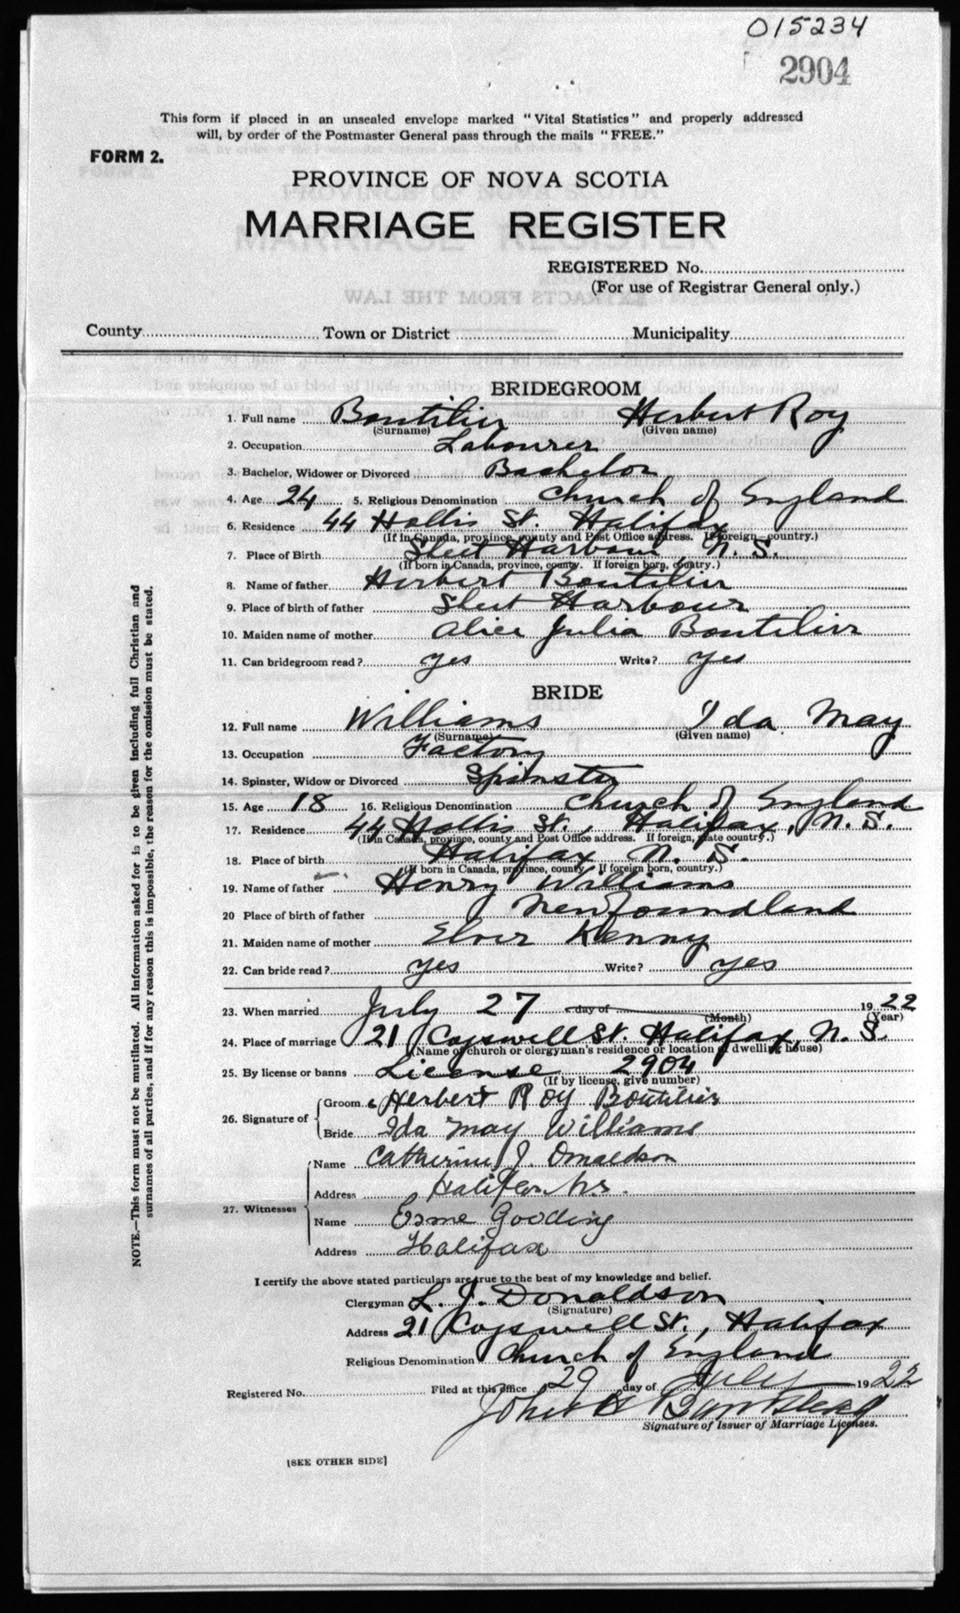 015234
2904
This form if placed in an unsealed envelope marked "Vital Statistics" and properly addressed
will, by order of the Postmaster General pass through the mails "FREE."
FORM 2.
PROVINCE OF NOVA SCOTIA
MARRIAGE REGISTER
REGISTERED No.
(For use of Registrar General only.)
County Town or District Municipality
BRIDEGROOM
1. Full name Boutilier Herbert Roy
(Surname) (Given name)
2. Occupation Labourer
3. Bachelor, Widower or Divorced Bachelor
4. Age 24 5. Religious Denomination Church of England
6. Residence 44 Hollis St. Halifax
(If in Canada, province, county and Post Office address. If foreign—country.)
7. Place of Birth Sleet Harbour, N.S.
(If born in Canada, province, county. If foreign born, country.)
8. Name of father Herbert Boutilier
9. Place of birth of father Sleet Harbour
10. Maiden name of mother Alice Julia Boutilier
11. Can bridegroom read? yes Write? yes
BRIDE
12. Full name Williams Ida May
(Surname) (Given name)
13. Occupation Factory
14. Spinster, Widow or Divorced Spinster
15. Age 18 16. Religious Denomination Church of England
17. Residence 44 Hollis St., Halifax, N.S.
(If in Canada, province, county and Post Office address. If foreign, state country.)
18. Place of birth Halifax N.S.
(If born in Canada, province, county. If foreign born, country.)
19. Name of father Henry Williams
20 Place of birth of father Newfoundland
21. Maiden name of mother Kenny
22. Can bride read? yes Write? yes
23. When married July 27 day of 1922
(Month) (Year)
24. Place of marriage 21 Cogswell St. Halifax, N.S.
(Name of church or clergyman's residence or location of dwelling house)
25. By license or banns License 2904
(If by license, give number)
26. Signature of Groom Herbert Roy Boutilier
Bride Ida May Williams
27. Witnesses Name Catherine J. Donaldson
Address Halifax N.S.
Name Esme Gooding
Address Halifax
I certify the above stated particulars are true to the best of my knowledge and belief.
Clergyman L. J. Donaldson
(Signature)
Address 21 Cogswell St., Halifax
Religious Denomination Church of England
Registered No. Filed at this office 29 day of July 1922
John H
Signature of Issuer of Marriage Licenses.
[SEE OTHER SIDE]
NOTE.—This form must not be mutilated. All information asked for is to be given including full Christian and
surnames of all parties, and if for any reason this is impossible, the reason for the omission must be stated.